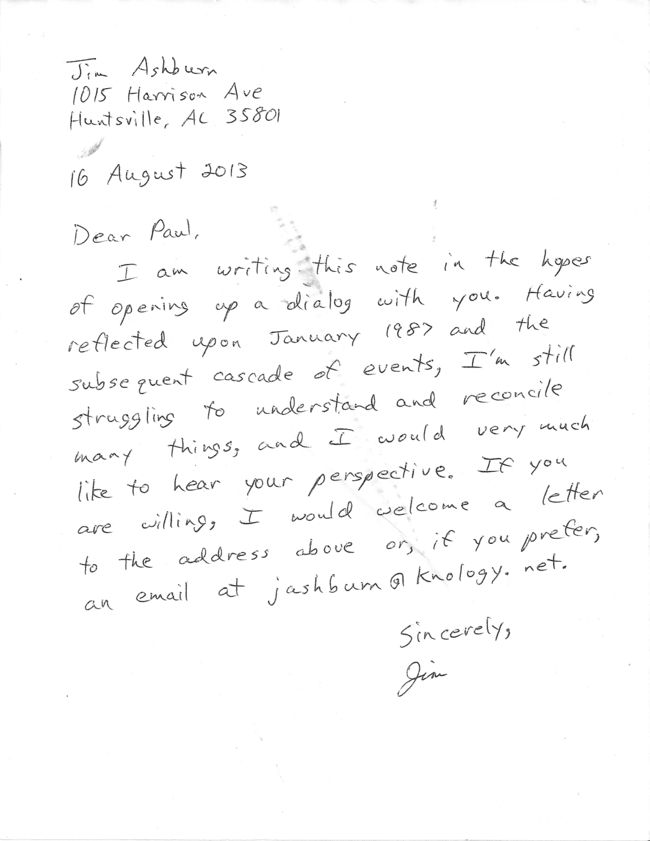 Jim Ashburn
1015 Harrison Ave
Huntsville, AL 35801
16 August 2013
Dear Paul,
I am writing this note in the hopes
of opening up a dialog with you. Having
reflected upon January 1987 and the
subsequent cascade of events, I'm still
struggling to understand and reconcile
many things, and I would very much
like to hear your perspective. If you
are willing, I would welcome a letter
to the address above or, if you prefer,
an email at jashburn@knology.net.
Sincerely,
Jim